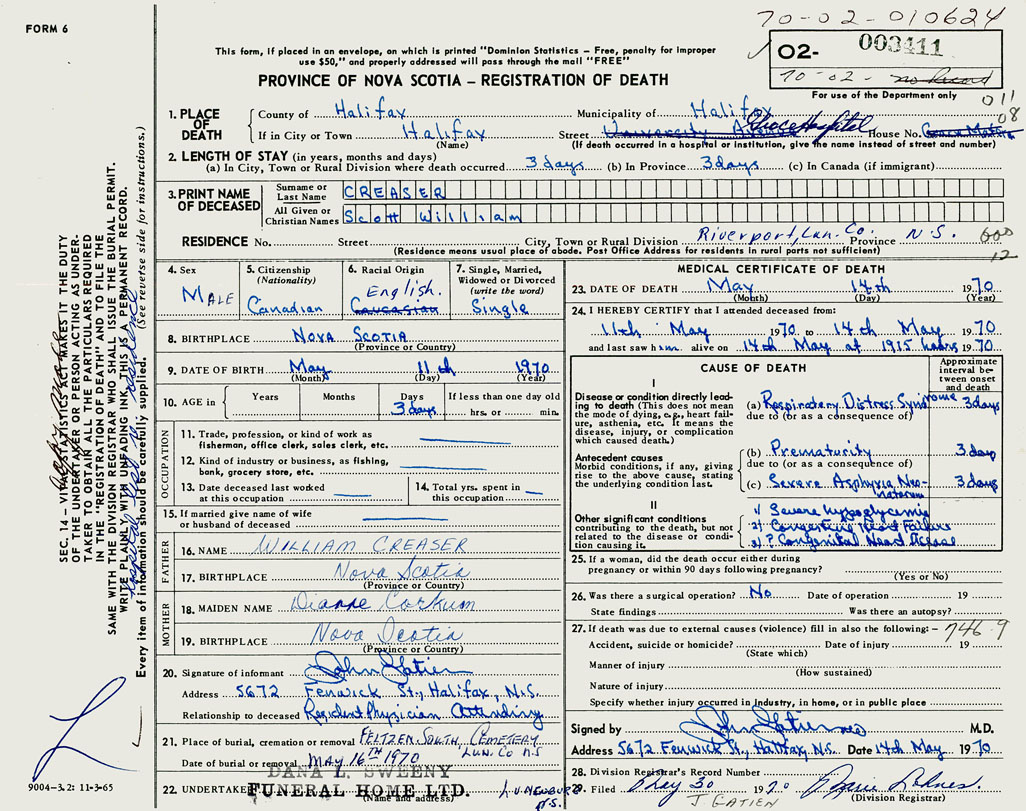 FORM 6
70-02-010624
This form, if placed in an envelope, on which is printed "Dominion Statistics – Free, penalty for improper
use $50," and properly addressed will pass through the mail "FREE"
PROVINCE OF NOVA SCOTIA – REGISTRATION OF DEATH
02- 003411
70-02- no Record
For use of the Department only
011
08
1. PLACE OF DEATH
County of Halifax Municipality of Halifax
If in City or Town Halifax Street University Grace Hospital House No. Grace
(Name) (If death occurred in a hospital or institution, give the name instead of street and number)
2. LENGTH OF STAY (in years, months and days)
(a) In City, Town or Rural Division where death occurred 3 days (b) In Province 3 days (c) In Canada (if immigrant)
3. PRINT NAME OF DECEASED
Surname or Last Name CREASER
All Given or Christian Names Scott William
RESIDENCE No. Street City, Town or Rural Division Riverport, Lun. Co. Province N.S.
(Residence means usual place of abode. Post Office Address for residents in rural parts not sufficient)
12
4. Sex
MALE
5. Citizenship (Nationality)
Canadian
6. Racial Origin
English.
Caucasian
7. Single, Married, Widowed or Divorced (write the word)
Single
8. BIRTHPLACE NOVA SCOTIA
(Province or Country)
9. DATE OF BIRTH May 11th 1970
(Month) (Day) (Year)
10. AGE in Years Months Days If less than one day old
3 days hrs. or min.
OCCUPATION
11. Trade, profession, or kind of work as fisherman, office clerk, sales clerk, etc.
12. Kind of industry or business, as fishing, bank, grocery store, etc.
13. Date deceased last worked at this occupation
14. Total yrs. spent in this occupation
15. If married give name of wife or husband of deceased
FATHER
16. NAME WILLIAM CREASER
17. BIRTHPLACE Nova Scotia
(Province or Country)
MOTHER
18. MAIDEN NAME Dianne Corkum
19. BIRTHPLACE Nova Scotia
(Province or Country)
20. Signature of informant John Gatien
Address 5672 Fenwick St., Halifax, N.S.
Relationship to deceased Resident Physician Attending
21. Place of burial, cremation or removal FELTZEN SOUTH, CEMETERY
LUN. CO N.S
Date of burial or removal MAY 16TH 1970
DANA L. SWEENY
22. UNDERTAKER FUNERAL HOME LTD. LUNENBURG
(Name and address) N.S.
MEDICAL CERTIFICATE OF DEATH
23. DATE OF DEATH May 14th 1970
(Month) (Day) (Year)
24. I HEREBY CERTIFY that I attended deceased from:
11th May 1970 to 14th May 1970
and last saw him alive on 14th May at 1915 hours 1970
CAUSE OF DEATH
Approximate interval between onset and death
I
Disease or condition directly leading to death (This does not mean the mode of dying, e.g., heart failure, asthenia, etc. It means the disease, injury, or complication which caused death.)
(a) Respiratory Distress Syndrome 3 days
due to (or as a consequence of)
Antecedent causes
Morbid conditions, if any, giving rise to the above cause, stating the underlying condition last.
(b) Prematurity 3 days
due to (or as a consequence of)
(c) Severe Asphyxia Neonatorum 3 days
II
Other significant conditions contributing to the death, but not related to the disease or condition causing it.
1) Severe hypoglycemia
2) Congestive Heart Failure
3) ? Congenital Heart Disease
25. If a woman, did the death occur either during
pregnancy or within 90 days following pregnancy?
(Yes or No)
26. Was there a surgical operation? No Date of operation 19
State findings Was there an autopsy?
27. If death was due to external causes (violence) fill in also the following: – 746.9
Accident, suicide or homicide? Date of injury 19
(State which)
Manner of injury
(How sustained)
Nature of injury
Specify whether injury occurred in Industry, in home, or in public place
Signed by John Gatien M.D.
Address 5672 Fenwick St, Halifax, N.S. Date 14th May 1970
28. Division Registrar's Record Number
29. Filed May 30 1970
J. GATIEN (Division Registrar)
SEC. 14 – VITAL STATISTICS ACT MAKES IT THE DUTY
OF THE UNDERTAKER OR PERSON ACTING AS UNDER-
TAKER TO OBTAIN ALL THE PARTICULARS REQUIRED
IN THE "REGISTRATION OF DEATH" AND TO FILE THE
SAME WITH THE DIVISION REGISTRAR WHO SHALL ISSUE THE BURIAL PERMIT.
WRITE PLAINLY WITH UNFADING INK. THIS IS A PERMANENT RECORD.
Every item of information should be carefully supplied. (See reverse side for instructions.)
9004-3.2: 11-3-65